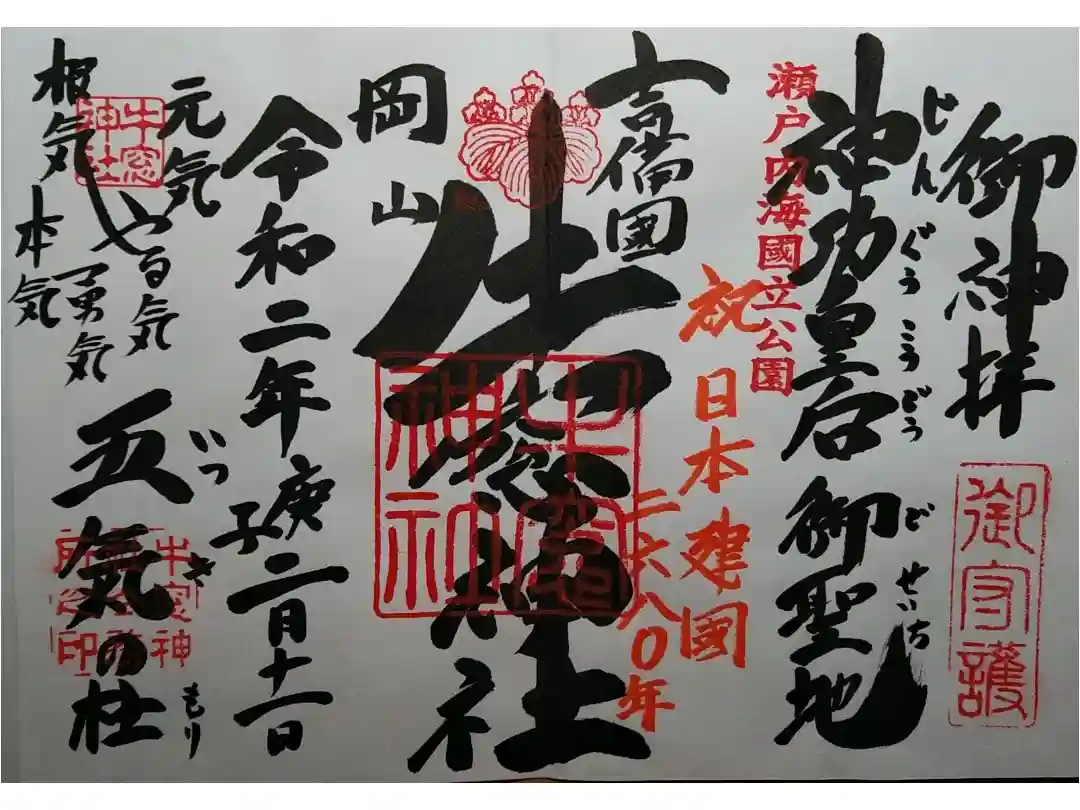 御神拝
御守護
神功皇后御聖地
じんぐうこうごう ご せいち
瀬戸内海國立公園
祝 日本建國
二六八〇年
吉備國
牛窓神社
牛窓神社
岡山
令和二年庚子二月十一日
元気
やる気
勇気
根気
本気
五氣の杜
いつき もり
牛窓神社